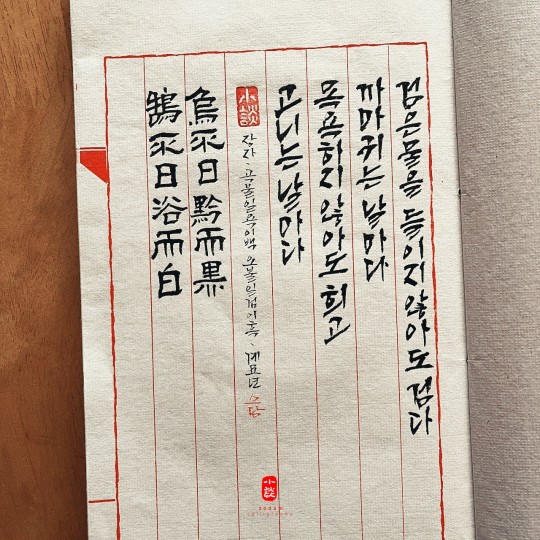 鵠不日浴而白
烏不日黔而黑
小談
장자, 곡불일욕이백 오불일검이흑, 계묘년 소담
고니는 날마다
목욕하지 않아도 희고
까마귀는 날마다
검은물을 들이지 않아도 검다
小談